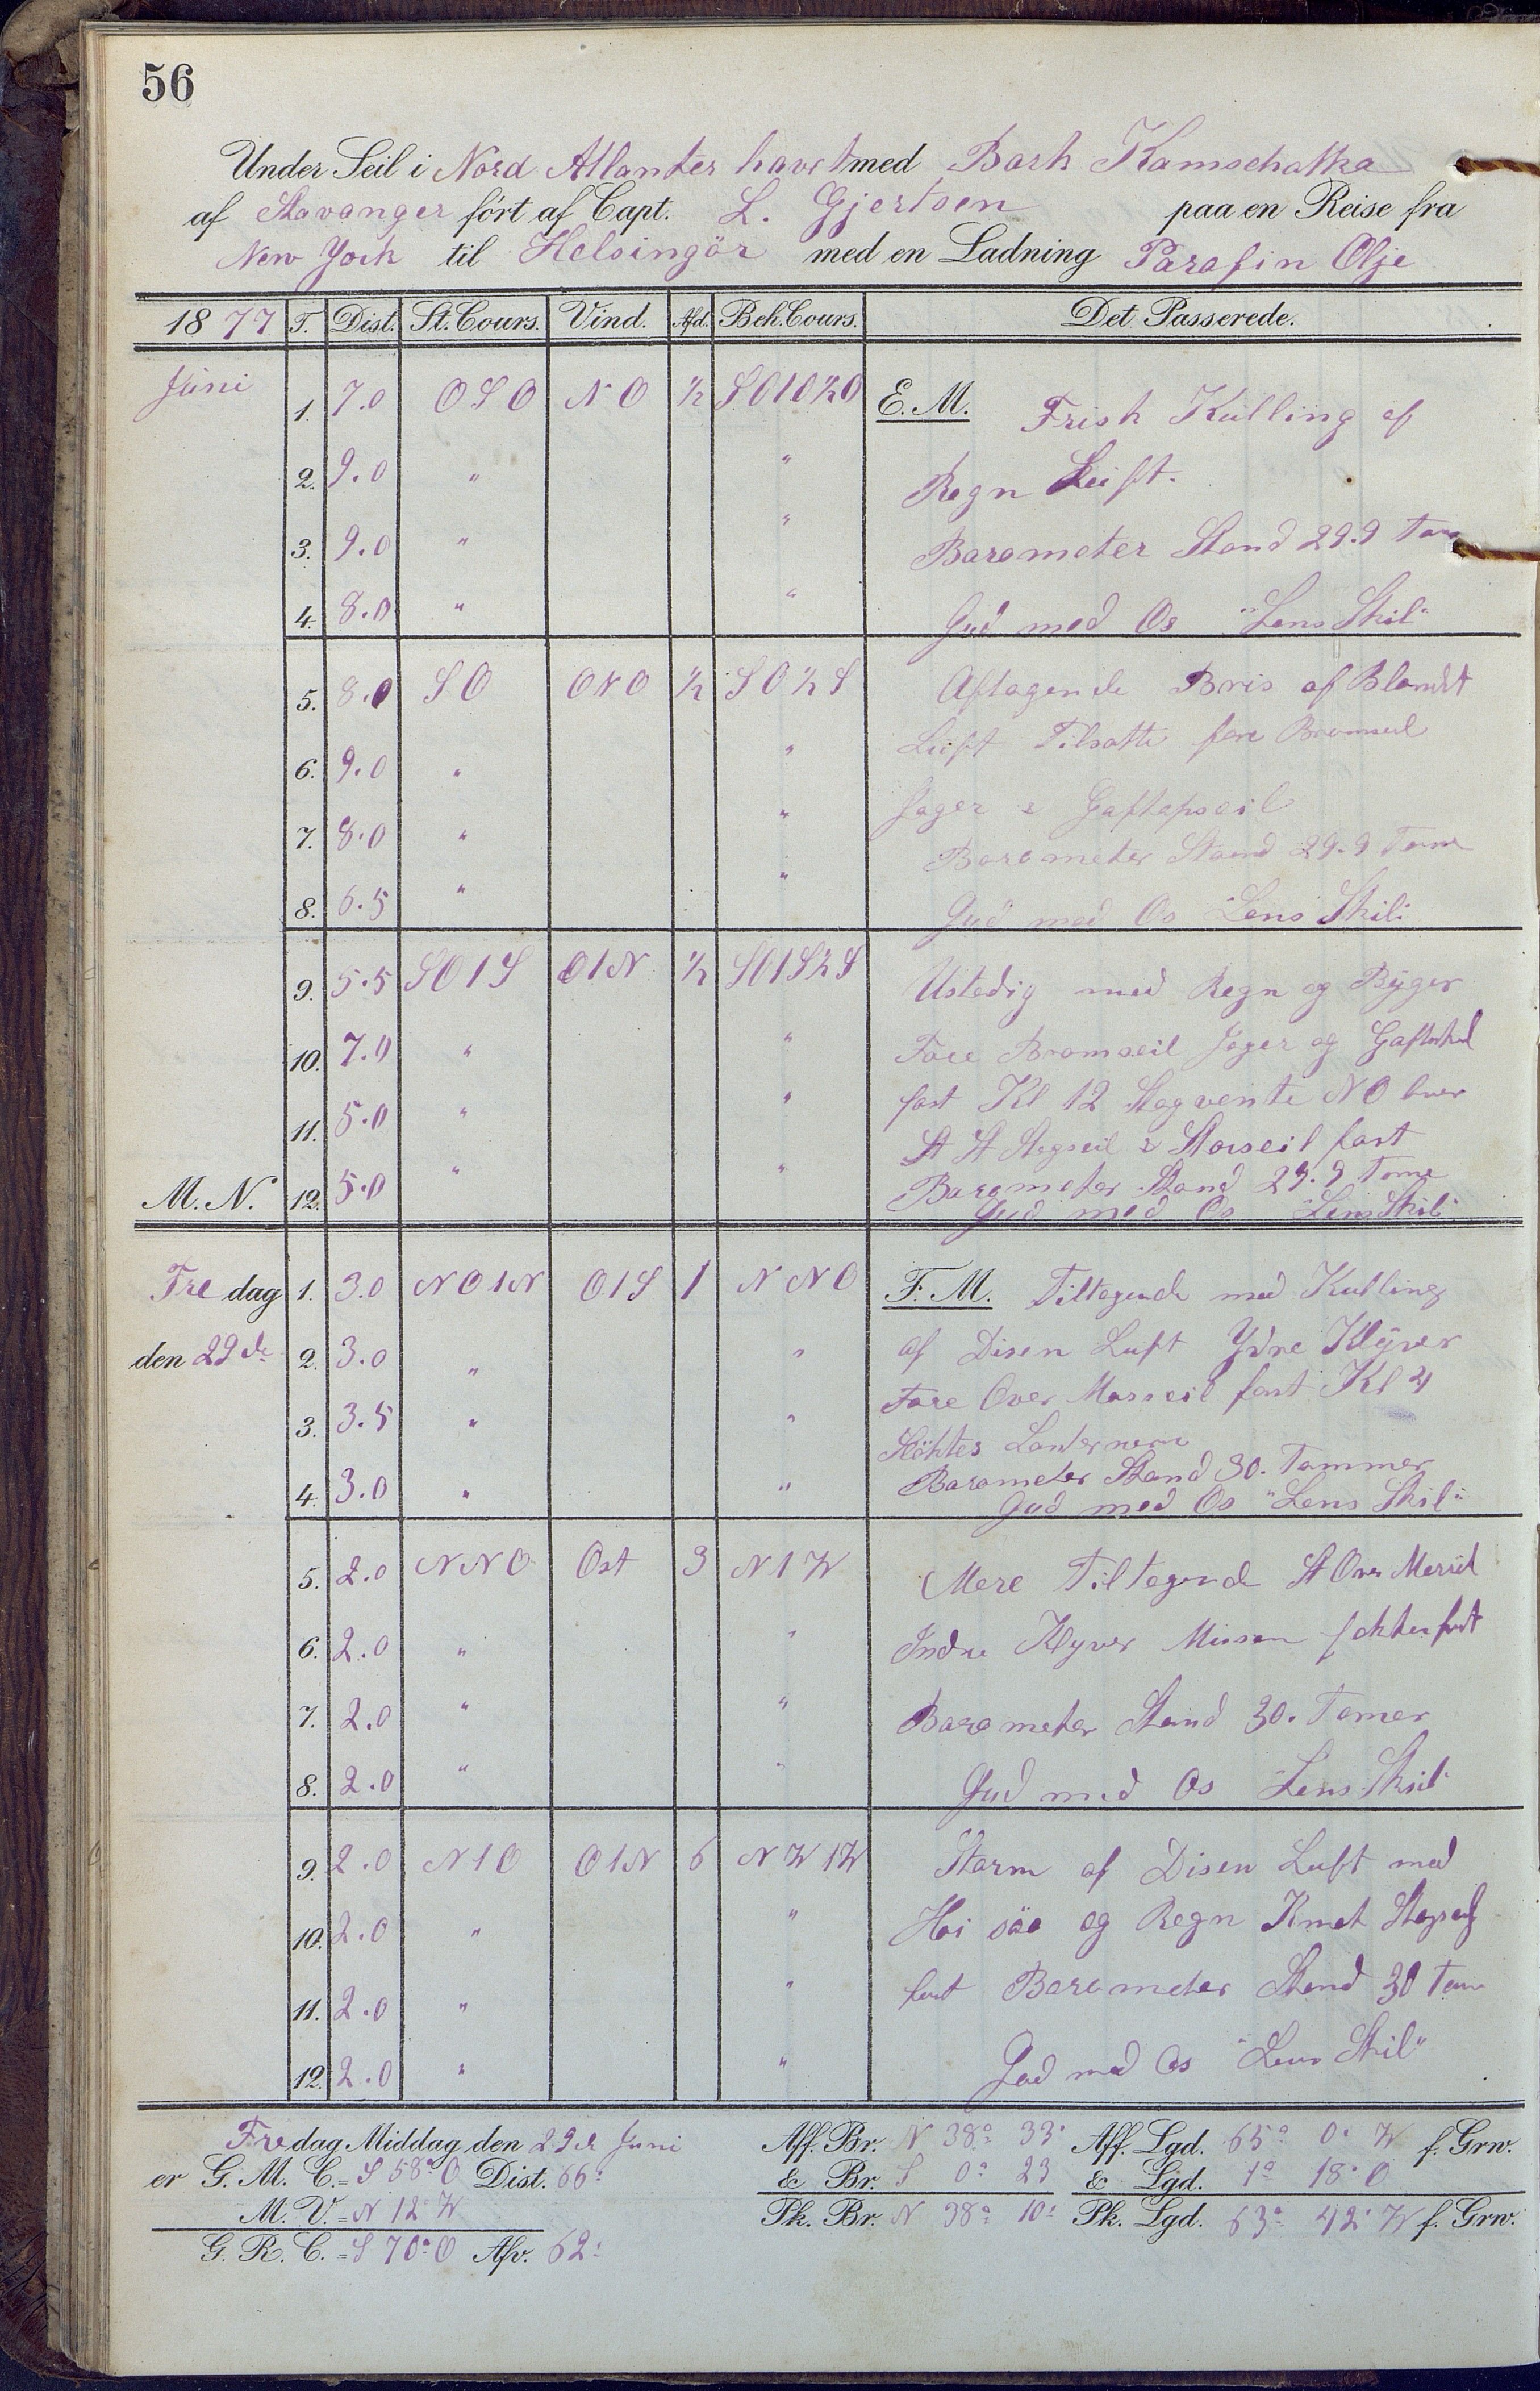 56
Under Seil i Nord Atlanter havet med Bark Kamschatka
af Stavanger fört af Capt. L. Gjertsen paa en Reise fra
New York til Helsingör med en Ladning Parafin Olje
1877 T. Dist. St. Cours. Vind. Afd. Beh. Cours. Det Passerede.
Juni 1. 7.0 OSO NO ½ SO1O½O E. M. Frisk Kulling af
2. 9.0 " " Regn Luft.
3. 9.0 " " Barometer Stand 29.9 Tom
4. 8.0 " " Gud med Os "Lens Skib"
5. 8.0 SO ONO ½ SO½S Aftagende Bris af Blandet
6. 9.0 " " Luft Tilsatte fore Bramseil
7. 8.0 " " Jager & Gaftopseil
Barometer Stand 29.9 Tome
8. 6.5 " " Gud med Os "Lens Skib"
9. 5.5 SO1S O1N ½ SO1S½S Ustadig med Regn og Byger
10. 7.0 " " Fore Bramseil Jager og
11. 5.0 " " fast Kl 12 Stagvente NO over
St St Stagseil & Storseil fast
M. N. 12. 5.0 " " Barometer Stand 29.9 Tome
Gud med Os "Lens Skib"
Fredag 1. 3.0 NO1N O1S 1 NNO F. M. Tiltagende med Kulling
den 29de 2. 3.0 " " af Disen Luft Ydre Klÿver
3. 3.5 " " Fore Over Marsseil fast Kl 4
Slöktes Lanternerne
4. 3.0 " " Barometer Stand 30. Tommer
Gud med Os "Lens Skib"
5. 2.0 NNO Ost 3 N1W Mere Tiltagende St Over Merseil
6. 2.0 " " Indre Klyver Missan
7. 2.0 " " Barometer Stand 30. Tomer
8. 2.0 " " Gud med Os "Lens Skib"
9. 2.0 N1O O1N 6 NW1W Storm af Disen Luft med
10. 2.0 " " Hoi söe og Regn
11. 2.0 " " fast Barometer Stand 30 Tom
12. 2.0 " " Gud med Os "Lens Skib"
Fredag Middag den 29de Juni Aff. Br. N 38° 33' Aff. Lgd. 65° 0' W f. Grw.
er G. M. C. = S 58° O Dist. 66' & Br. S 0° 23 & Lgd. 1° 18' O
M. V. = N 12° W Pk. Br. N 38° 10' Pk. Lgd. 63° 42' W f. Grw.
G. R. C. = S 70° O Afv. 62'